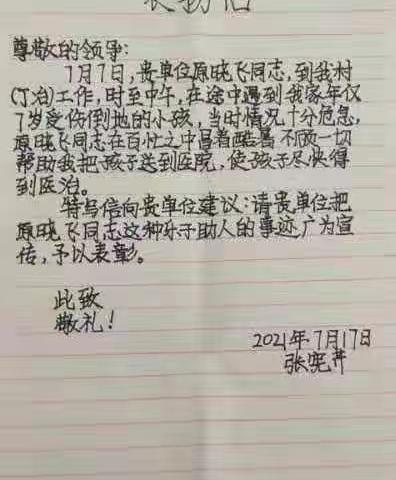 表扬信
尊敬的领导:
7月7日,贵单位原晓飞同志,到我村
(丁冶)工作,时至中午,在途中遇到我家年仅
7岁受伤倒地的小孩,当时情况十分危急,
原晓飞同志在百忙之中冒着酷暑 不顾一切
帮助我把孩子送到医院,使孩子尽快得
到医治。
特写信向贵单位建议:请贵单位把
原晓飞同志这种乐于助人的事迹广为宣
传,予以表彰。
此致
敬礼!
2021年7月17日
张宪